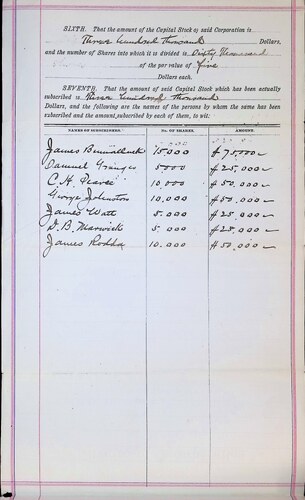 SIXTH. That the amount of the Capital Stock of said Corporation is
Three hundred thousand Dollars,
and the number of Shares into which it is divided is Sixty Thousand
of the par value of Five
Dollars each.
SEVENTH. That the amount of said Capital Stock which has been actually
subscribed is Three hundred thousand
Dollars, and the following are the names of the persons by whom the same has been
subscribed and the amount subscribed by each of them, to wit:
NAMES OF SUBSCRIBERS. No. OF SHARES. AMOUNT.
James 15,000 $75,000
Samuel Granger 5000 $25,000
C. H. Pearce 10,000 $50,000
George Johnston 10,000 $50,000
James Watt 5,000 $25,000
D. B. Marwick 5,000 $25,000
James Rodda 10,000 $50,000